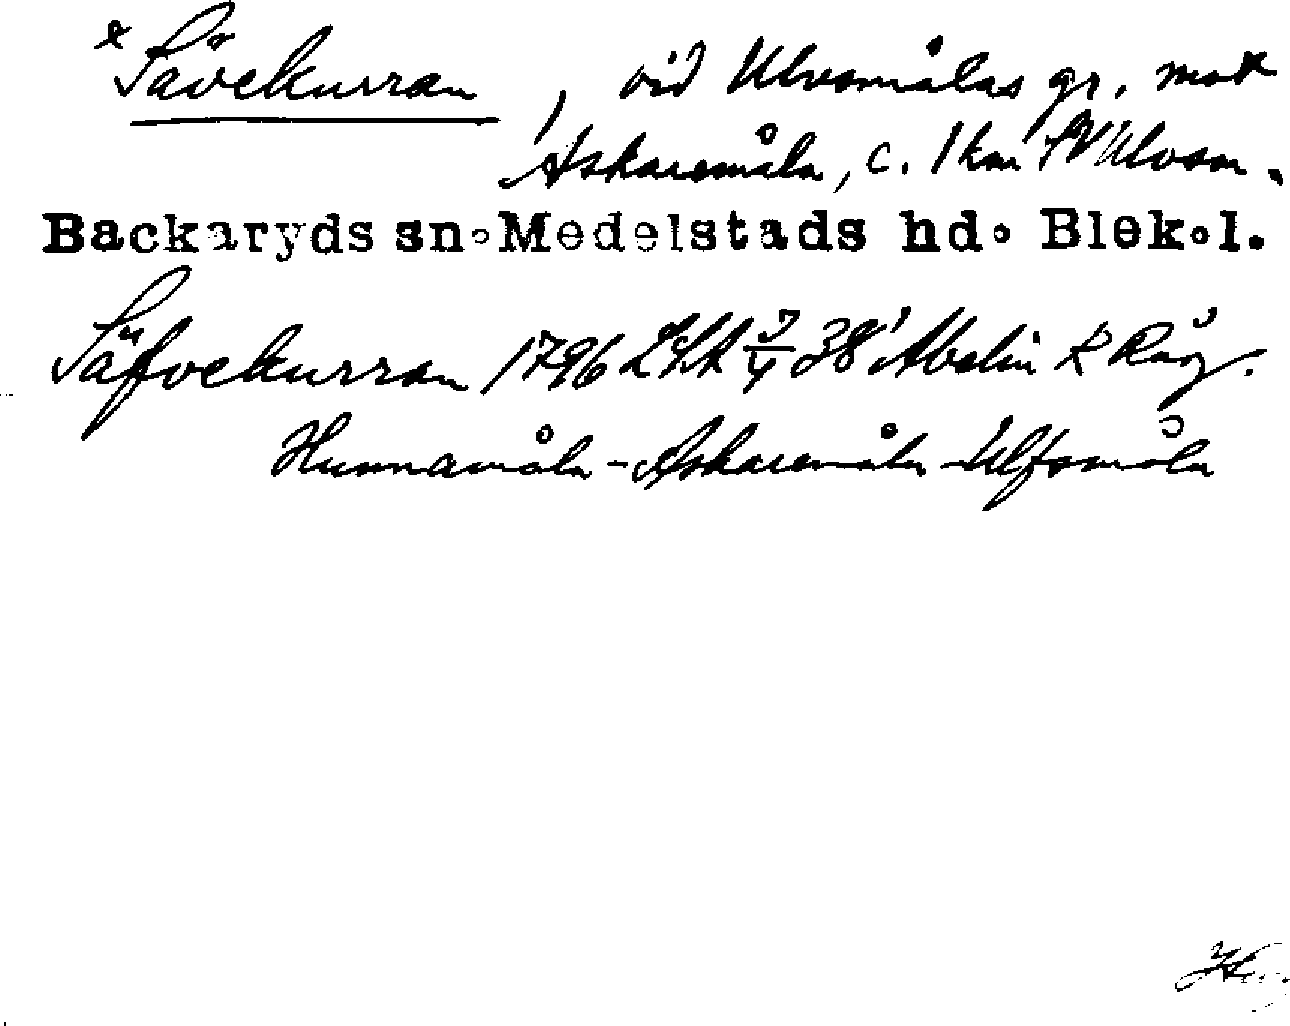 * Sävekurran, vid Ulvsmålas gr. mot
Askaremåla, c. 1 km SV Ulvsm.
Backaryds sn. Medelstads hd. Blek. l.
Säfvekurran 1796 LSA 7/4 38' Abelin R Råg.
Hunnamåla - Askaremåla - Ulfsmåla